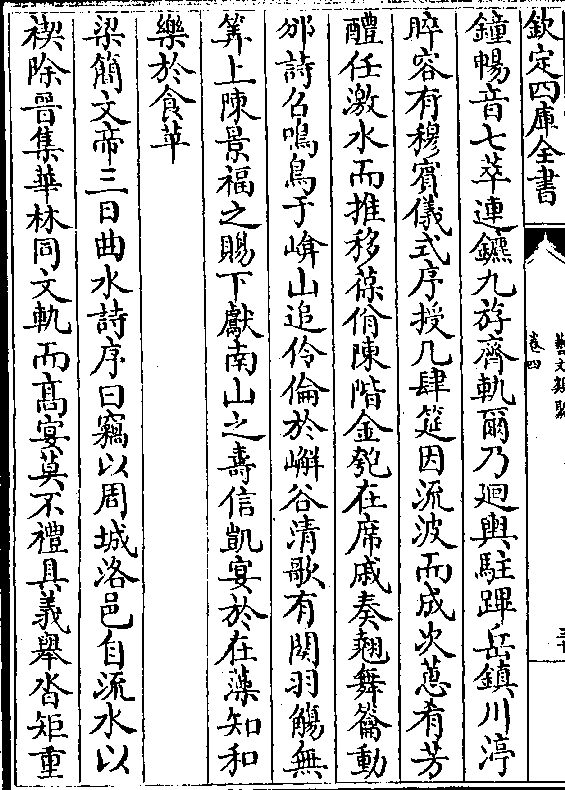 欽定四庫全書
藝文類聚
卷四
三十
鐘暢音七萃連鑣九斿齊軌爾乃廻輿駐蹕岳鎮川渟
睟容有穆賓儀式序授几肆筵因流波而成次蕙肴芳
醴任激水而推移葆佾陳階金匏在席戚奏翹舞籥動
邠詩召鳴鳥于山追伶倫於嶰谷清歌有闋羽觴無
筭上陳景福之賜下獻南山之壽信凱宴於在藻知和
樂於食苹
梁簡文帝三日曲水詩序曰竊以周城洛邑自流水以
禊除晉集華林同文軌而高宴莫不禮具義舉沓矩重